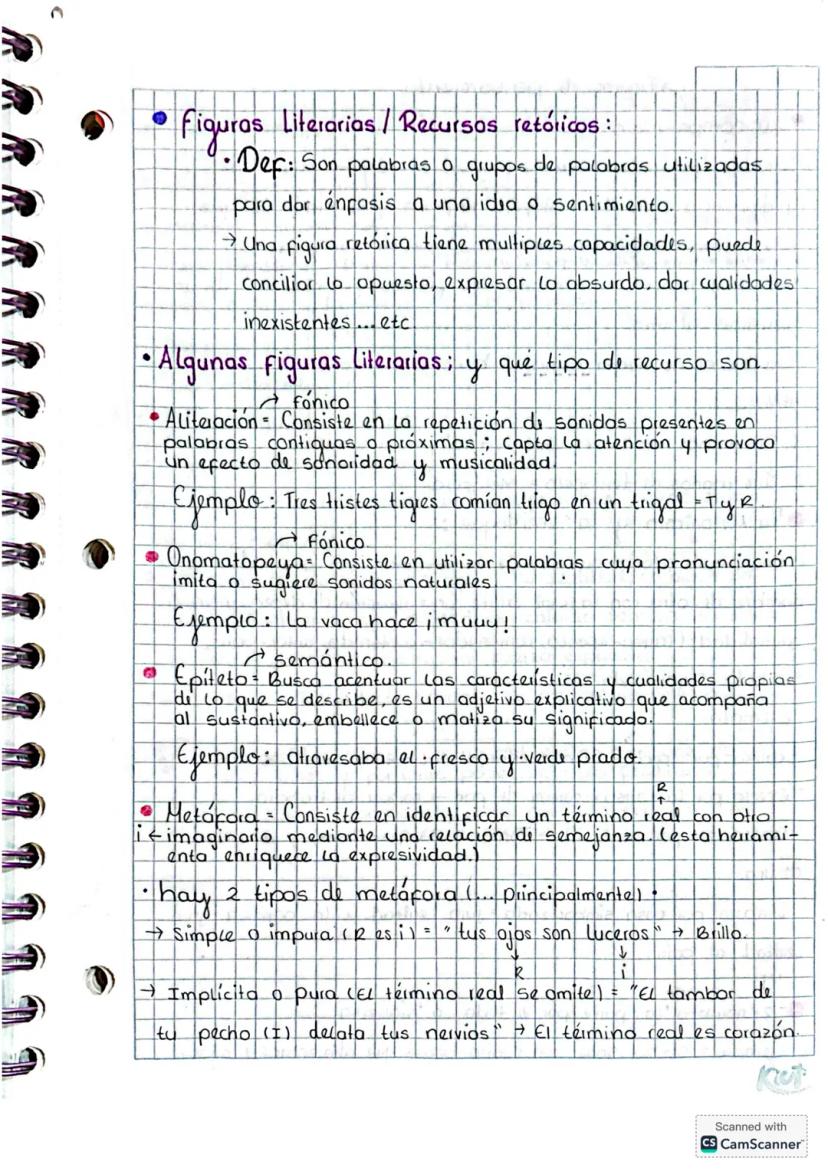 • Figuras Literarias / Recursos retóricos:
• Def: Son palabras o grupos de palabras utilizadas
para dar énfasis a una idea o sentimiento.
→ Una figura retórica tiene multiples capacidades, puede
conciliar lo opuesto, expresar lo absurdo, dar cualidades
inexistentes ... etc
• Algunas figuras Literarias; y qué tipo de recurso son
→ Fónico
• Aliteración = Consiste en la repetición de sonidos presentes en
palabras contiguas o próximas ; capta la atención y provoca
un efecto de sonoridad y musicalidad.
Ejemplo: Tres tristes tigres comían trigo en un trigal = T y R
→ Fónico
• Onomatopeya = Consiste en utilizar palabras cuya pronunciación
imita o sugiere sonidos naturales.
Ejemplo: La vaca hace ¡muuu!
→ semántico.
• Epíteto = Busca acentuar las características y cualidades propias
de lo que se describe, es un adjetivo explicativo que acompaña
al sustantivo, embellece o matiza su significado.
Ejemplo: atravesaba el · fresco y · verde prado.
R
↑
• Metáfora = Consiste en identificar un término real con otro
i ← imaginario mediante una relación de semejanza. (esta herrami-
enta enriquece la expresividad.)
• hay 2 tipos de metáfora (... Principalmente) •
→ Simple o impura (R es i) = "tus ojos son luceros" → Brillo.
↓ ↓
R i
→ Implícita o pura (El término real se omite) = "El tambor de
tu pecho (I) delata tus nervios" → El término real es corazón.
Scanned with
CS CamScanner